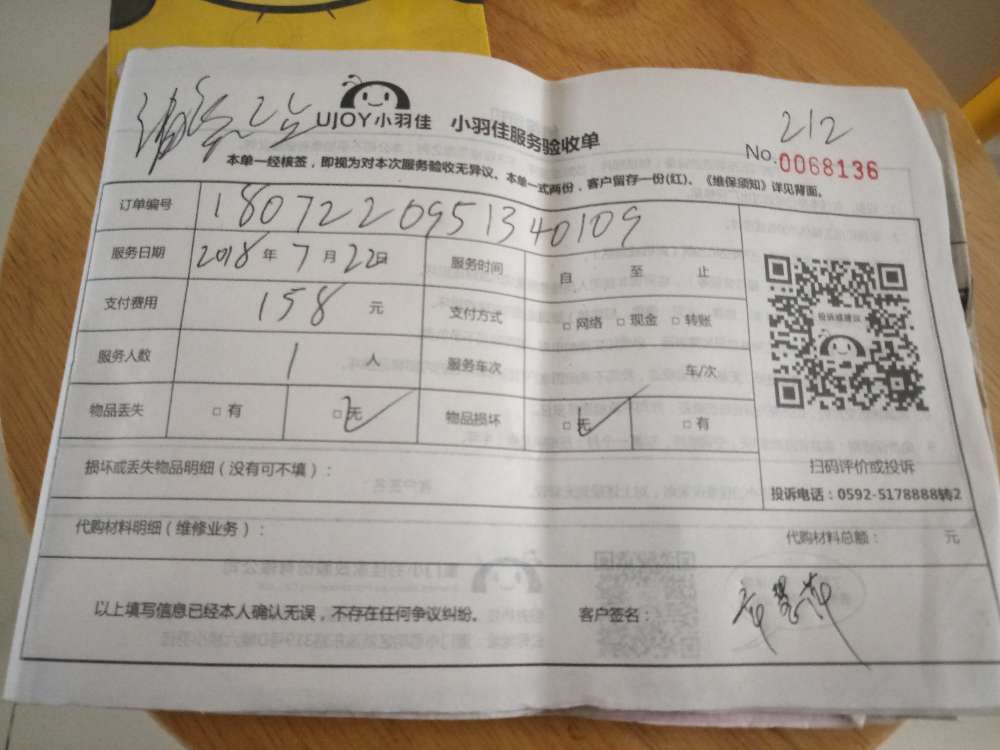 UJOY小羽佳 小羽佳服务验收单
212
No.0068136
本单一经核签，即视为对本次服务验收无异议。本单一式两份，客户留存一份(红)。《维保须知》详见背面。
订单编号 1807220951340109
服务日期 2018年7月22日 服务时间 自 至 止
支付费用 158 元 支付方式 □网络 □现金 □转账
服务人数 1 人 服务车次 车/次
物品丢失 □有 □无 物品损坏 □无 □有
投诉或建议
扫码评价或投诉
投诉电话：0592-5178888转2
损坏或丢失物品明细（没有可不填）：
代购材料明细（维修业务）： 代购材料总额： 元
以上填写信息已经本人确认无误，不存在任何争议纠纷。 客户签名：